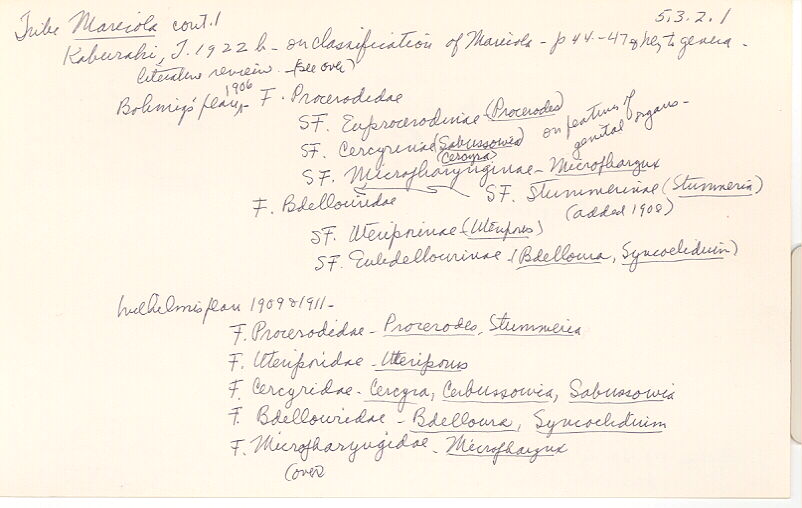 5.3.2.1
Tribe Maricola cont.1
Kaburaki, T. 1922 b - on classification of Maricola - p 44-47 & key to genera -
literature review - (see over)
Bohmig's plan, 1906 F. Procerodidae
SF. Euprocerodinae (Procerodes)
SF. Cercyrinae (Sabussowia) (Cercyra) on features of genital organs -
SF. Micropharynginae - Micropharynx
SF. Stummerinae (Stummeria)
(added 1908)
F. Bdellouridae
SF. Uteriporinae (Uteripores)
SF. Eubdellourinae (Bdelloura, Syncoelidium)
Wilhelmi's plan 1909 & 1911 -
F. Procerodidae - Procerodes, Stummeria
F. Uteriporidae - Uteriporus
F. Cercyridae - Cercyra, Cerbussowia, Sabussowia
F. Bdellouridae - Bdelloura, Syncoelidium
F. Micropharyngidae - Micropharynx
(over)